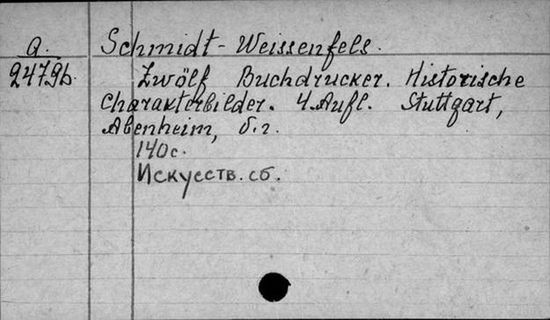 Q. Schmidt-Weissenfels.
2479b Zwölf Buchdrucker. Historische
Charakterbilder. 4 Aufl. Stuttgart,
Abenheim, б.г.
140с.
Искусств. сб.